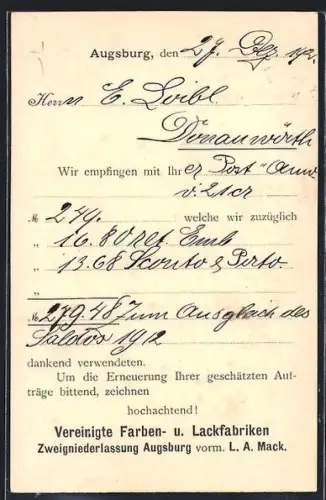 Augsburg, den 27. Dez. 192
Herrn E. Loibl
Donauwörth
Wir empfingen mit Ihrer Post-Anw.
v. 21. cr
M 249.— welche wir zuzüglich
„ 16.80 ret. Emb
„ 13.68 Skonto & Porto
„
M 279.48 Zum Ausgleich des
Saldos 1912
dankend verwendeten.
Um die Erneuerung Ihrer geschätzten Auf-
träge bittend, zeichnen
hochachtend!
Vereinigte Farben- u. Lackfabriken
Zweigniederlassung Augsburg vorm. L. A. Mack.